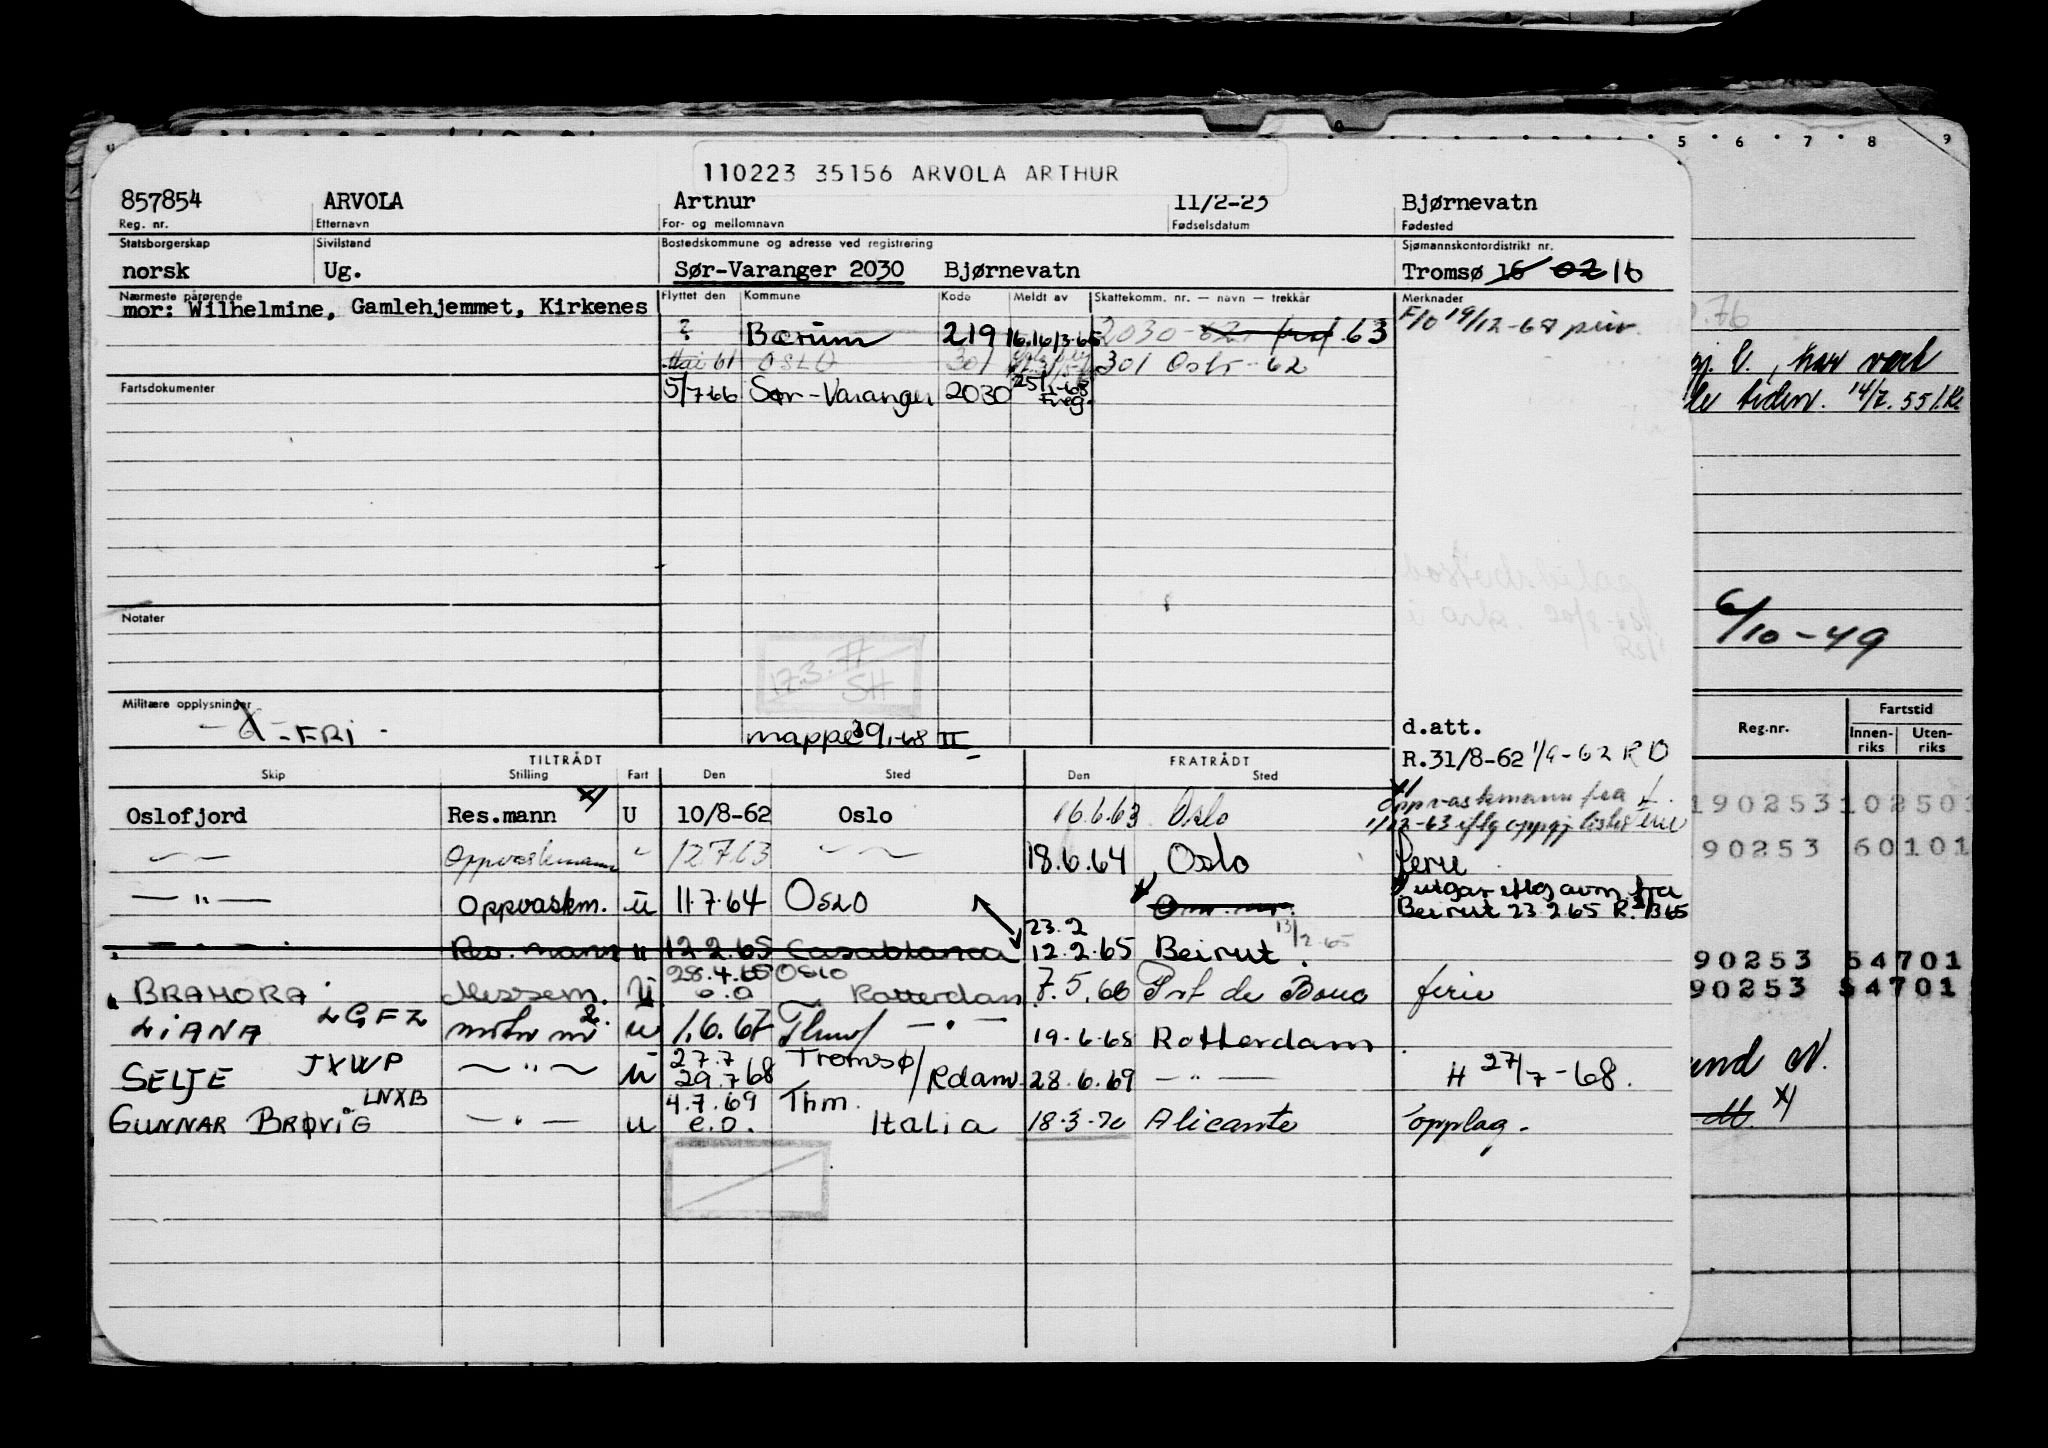 5 6 7 8 9
110223 35156 ARVOLA ARTHUR
857854 ARVOLA Arthur 11/2-23 Bjørnevatn
Reg. nr. Etternavn For- og mellomnavn Fødselsdatum Fødested
Statsborgerskap Sivilstand Bostedskommune og adresse ved registrering Sjømannskontordistrikt nr.
norsk Ug. Sør-Varanger 2030 Bjørnevatn Tromsø 16 02 16
Nærmeste pårørende Flyttet den Kommune Kode Meldt av Skattekomm. nr. — navn — trekkår Merknader
mor: Wilhelmine, Gamlehjemmet, Kirkenes
? Bærum 219 2030 63
Mai 61 OSLO 301 301 Oslo - 62
Fartsdokumenter
5/7 66 Sør-Varanger 2030 25/1-68 Freg.
har vært
tiden. 14/7.55
6/10-49
Notater
17.3.77
SH
Militære opplysninger
X - FRI -
mappe 39.-68 II
d.att.
R.31/8-62 1/9-62 R O
Reg.nr. Fartstid
Innen-riks Uten-riks
TILTRÅDT FRATRÅDT
Skip Stilling Fart Den Sted Den Sted
Oslofjord Res.mann x/ U 10/8-62 Oslo 16.6.63 Oslo
x/ Oppvaskmann fra
190253 102501
— " — Oppvaskmann " 12.7.63 — " — 18.6.64 Oslo ferie
90253 60101
— " — Oppvaskm. u 11.7.64 Oslo
utgår iflg avm. fra
Beirut 23.2.65
23.2
— " — Res.mann u 12.2.65 Casablanca 12.2.65 Beirut 13/2-65
90253 54701
28.4.65 Oslo
BRAMORA Messem. U e.o Rotterdam 7.5.66 Port de Bouc ferie
90253 54701
LIANA LGFZ 2. u 1.6.67 — " — 19.6.68 Rotterdam
SELJE JXWP — " — u 27.7 29.7 68 Tromsø/Rdam 28.6.69 — " — H 27/7-68.
GUNNAR BRØVIG LNXB — " — u 4.7.69 e.o. Thm. Italia 18.3.70 Alicante opplag.
x/